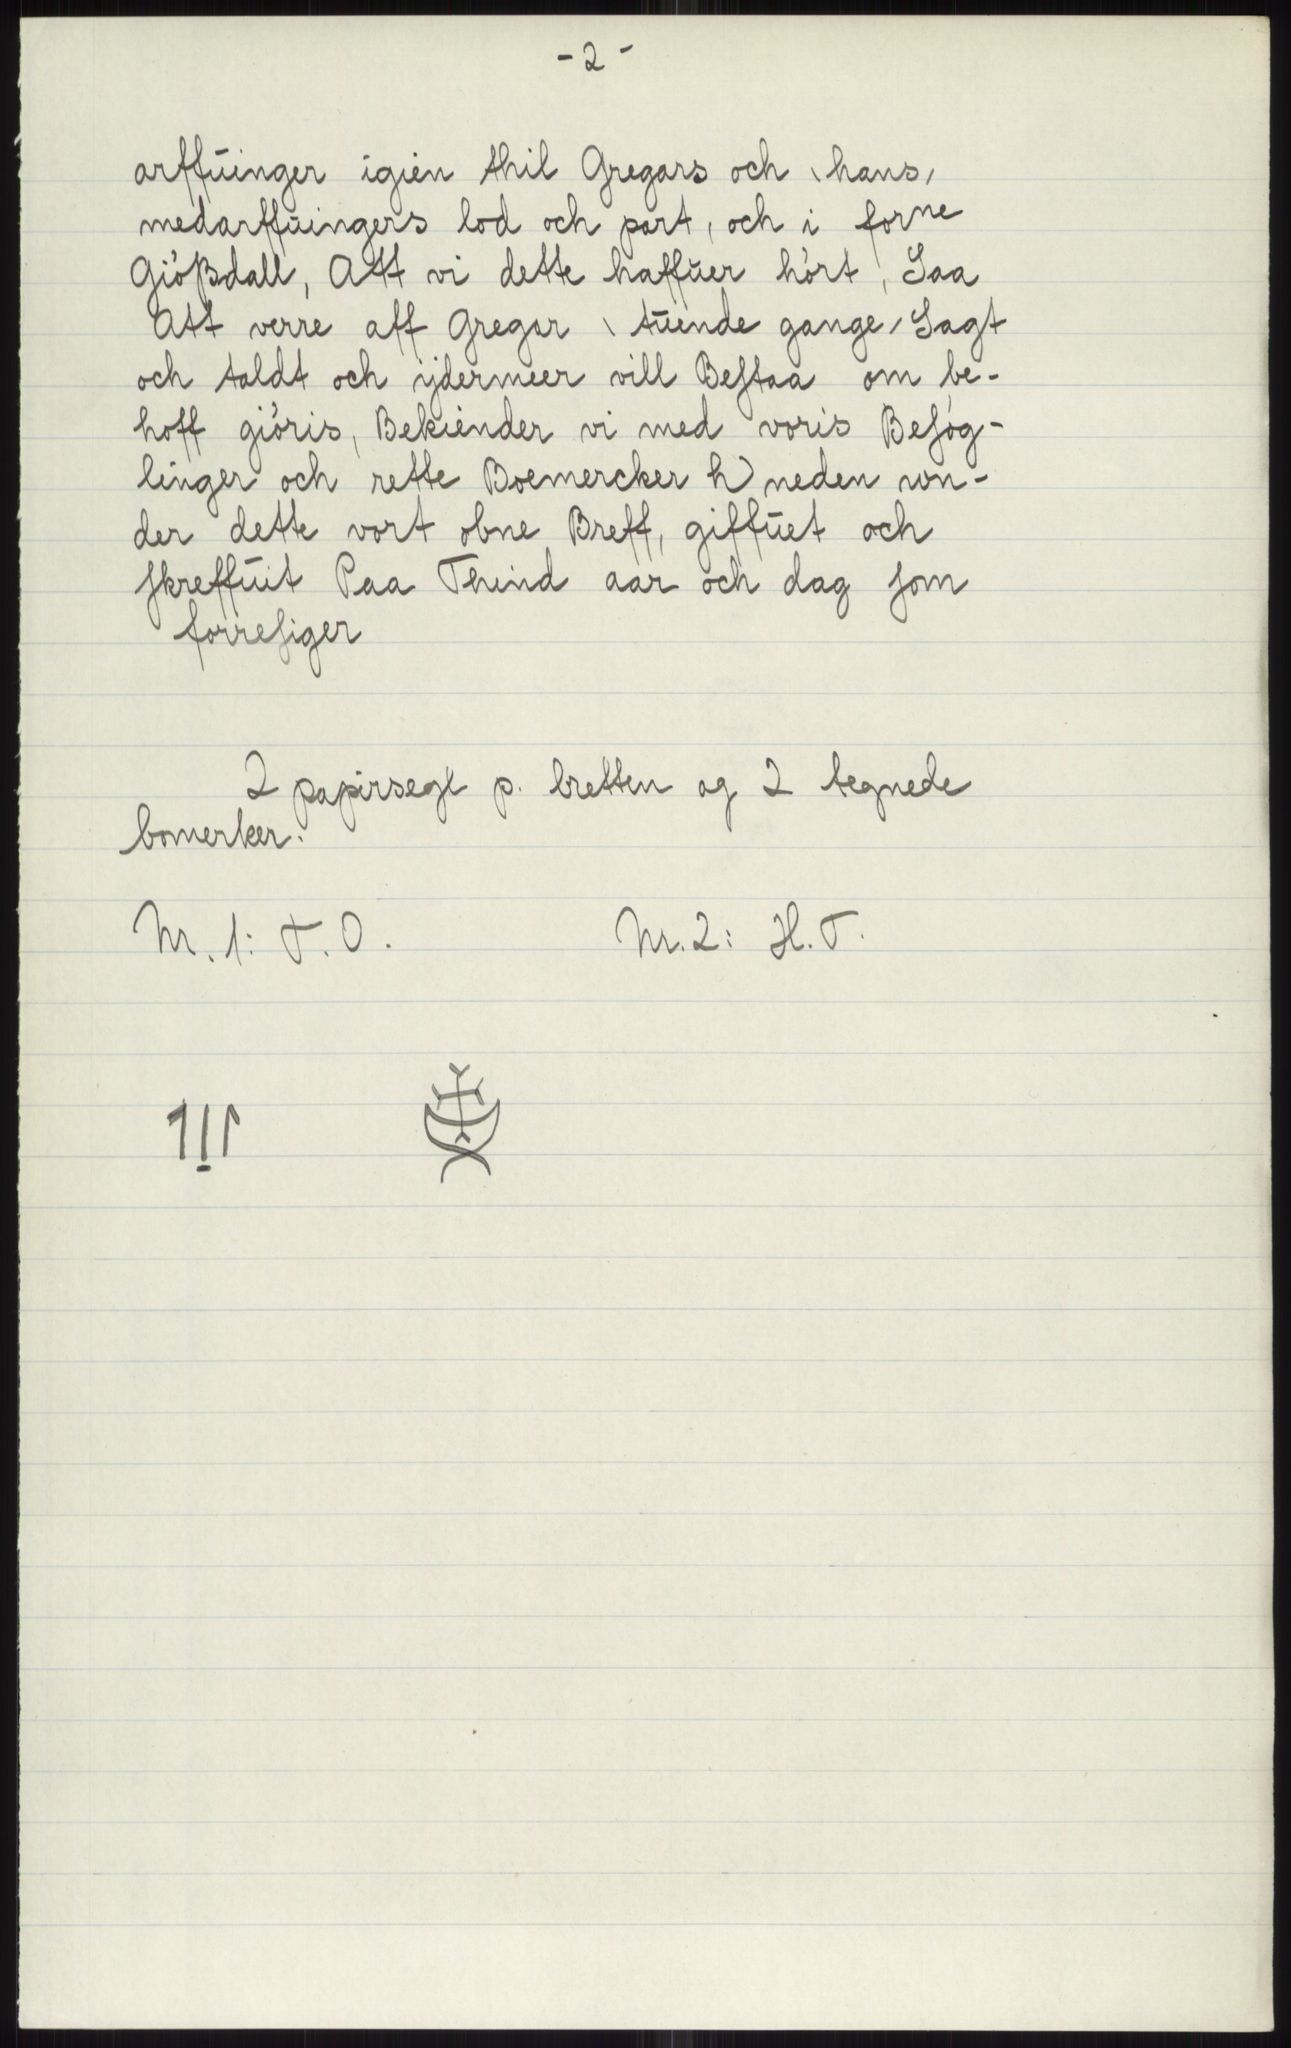 - 2 -
arffúinger igien thil Gregars och \ hans /
medarffúingers lod och part, och i forne
Giößdall, Att vi dette haffúer hört, Saa
Att verre aff Gregar \ túende gange / Sagt
och taldt och ijdermeer vill Bestaa om be-
hoff giöris, Bekiender vi med voris Besög-
linger och rette Boemercker h) neden wn-
der dette vort obne Breff, giffúet och
skreffúit Paa Thind aar och dag som
forresiger
2 papirsegl p. bretten og 2 tegnede
bomerker.
Nr. 1: T. O. Nr. 2: H. T.